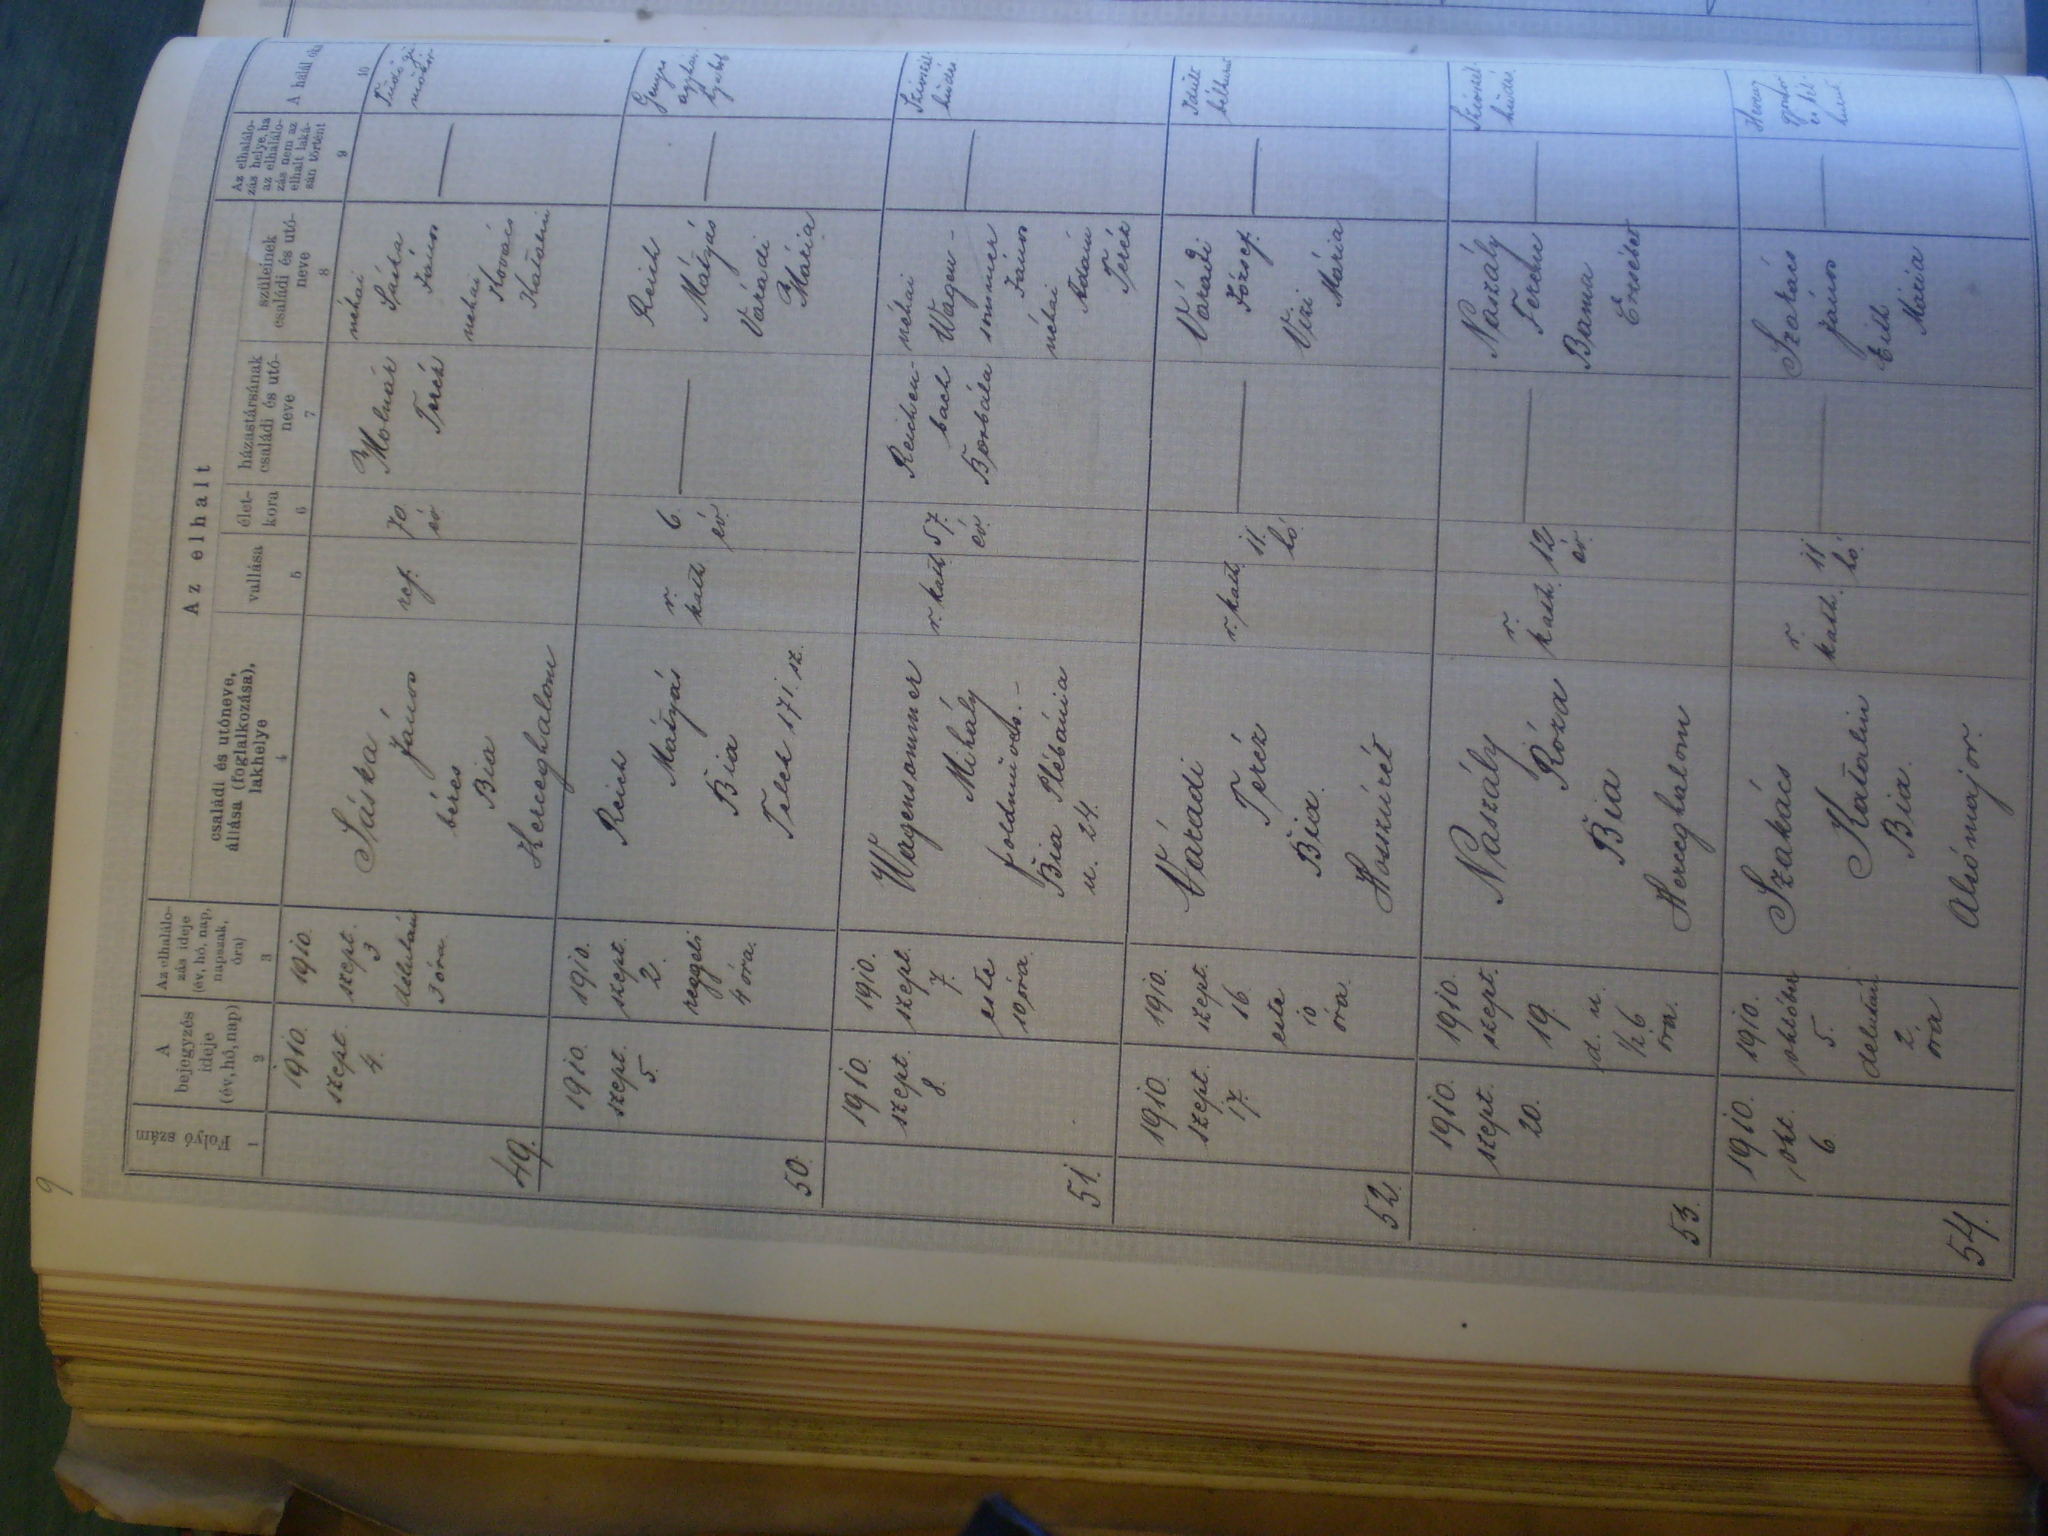 9
Folyó szám
1
A
bejegyzés
ideje
(év, hó, nap)
2
Az elhalálo-
zás ideje
(év, hó, nap,
napszak,
óra)
3
Az elhalt
családi és utóneve,
állása (foglalkozása),
lakhelye
4
vallása
5
élet-
kora
6
házastársának
családi és utó-
neve
7
szüleinek
családi és utó-
neve
8
Az elhalálo-
zás helye, ha
az elhálálo-
zás nem az
elhalt laká-
sán történt
9
A halál oka
10
49.
1910.
szept.
4.
1910.
szept.
3
délután
3 óra.
Sáska
János
béres
Bia
Herceghalom
ref.
70
év.
Molnár
Teréz
néhai
Sáska
János
néhai
Kovács
Katalin
50.
1910.
szept.
5.
1910.
szept.
2.
reggeli
4 óra.
Reich
Mátyás
Bia
Telek 171. sz.
r.
kath
6.
év.
Reich
Mátyás
Váradi
Mária
51.
1910.
szept.
8.
1910.
szept.
7.
este
10 óra.
Wagensommer
Mihály
földmüves.
Bia Plébánia
u. 24.
r. kath
57.
év.
Reichen-
bach
Borbála
néhai
Wagen-
sommer
János
néhai
Adam
Teréz
Szivszél-
hüdés
52.
1910.
szept.
17.
1910.
szept.
16.
este
10
óra.
Váradi
Teréz
Bia.
Hosszúrét
r. kath.
11.
hó.
Váradi
József.
Vizi
Mária
bélhurut
53.
1910.
szept.
20.
1910.
szept.
19.
d. u.
1/2 6
óra.
Naszály
Róza
Bia
Herceghalom
r.
kath.
12
év.
Naszály
Ferencz
Banna
Erzsébet
Szivszél-
hüdés
54.
1910.
okt.
6.
1910.
október
5.
délután
2.
óra
Szakács
Katalin
Bia.
Alsómajor.
r.
kath.
11
hó.
Szakács
János
Mária